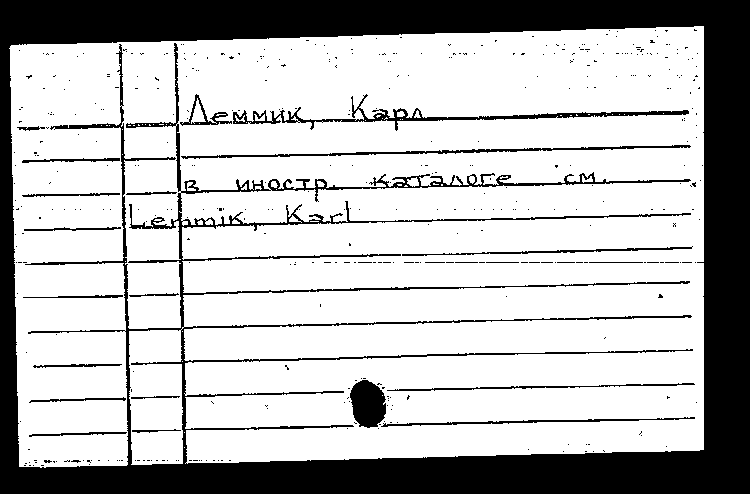 Леммик, Карл
в иностр. каталоге см.
Lemmik, Karl